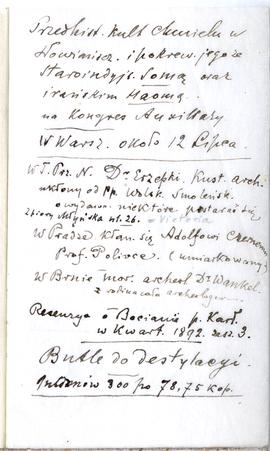 Przedhist. kult Chmielu w
Słowiańszcz. i pokrew. jego ze
Staroindyjs. Somą oraz
irańskim Haomą.
na Kongres Auxillary
W Warsz. około 12 Lipca.
W T. Prz. N. Dr Erzepki, Kust. arch.
ukłony od pp. Wolsk. Smoleńsk.
o wydawn. niektóre postarać się
Zbiory Młyńska ul. 26. Victoria
w Pradze kłan. się Adolfowi Czernemu
Prof. Polivce (umiarkowany)
w Brnie mor. archeol. Dr Wankel.
z archeologiem.
Recenzya o Bocianie p. Karł.
w Kwart. 1892. zesz. 3.
Butle do destylacyi.
300 po 78,75 kop.